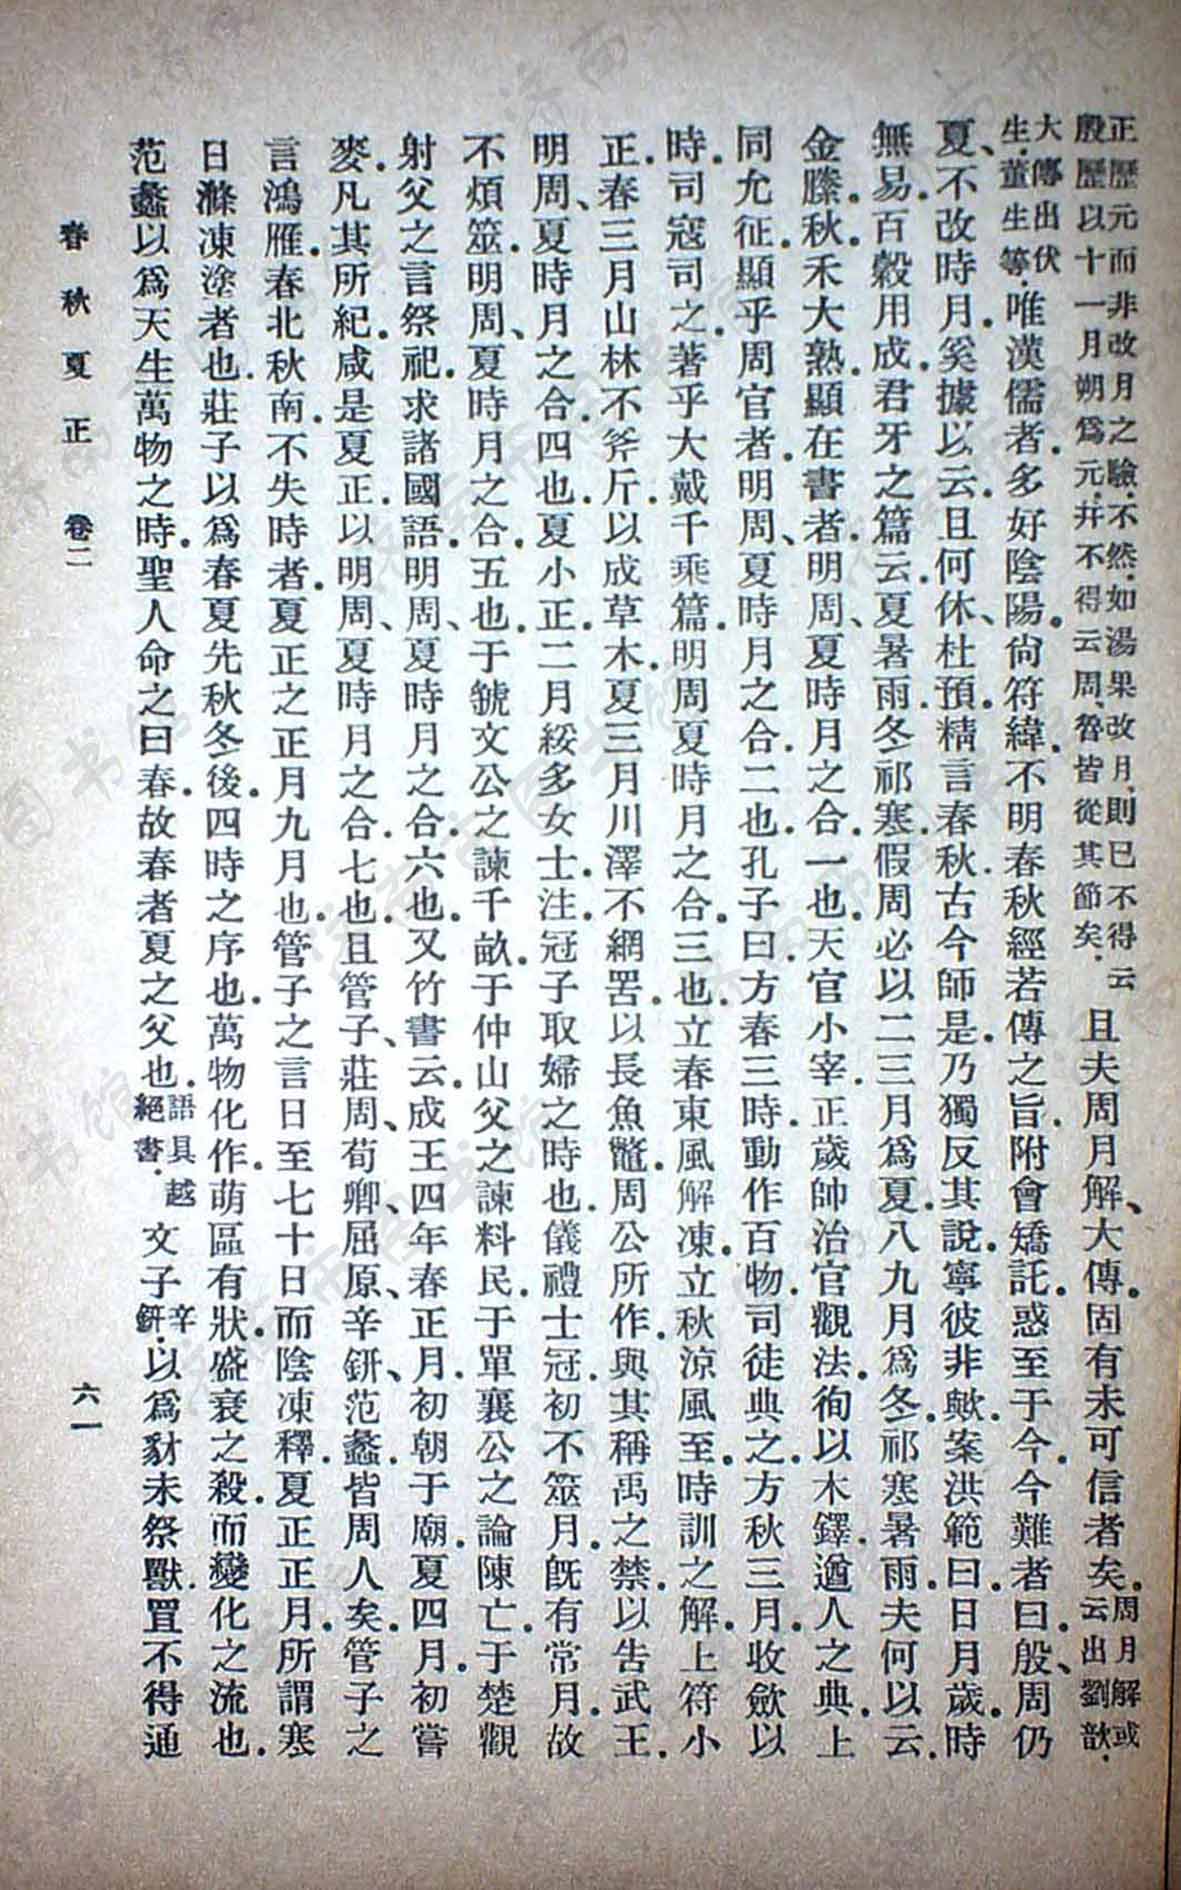 正歷元而非改月之驗．不然．如湯果改月．則已不得云
殷歷以十一月朔爲元．幷不得云周、魯皆從其節矣．且夫周月解、大傳．固有未可信者矣．周月解或
云出劉歆．
大傳出伏
生．董生等．唯漢儒者．多好陰陽．尙符緯．不明春秋經若傳之旨．附會矯託．惑至于今．今難者曰．殷、周仍
夏、不改時月．奚據以云．且何休、杜預．精言春秋．古今師是．乃獨反其說．寧彼非歟．案洪範曰．日月歲．時
無易．百穀用成．君牙之篇云．夏暑雨．冬祁寒．假周必以二三月爲夏．八九月爲冬．祁寒暑雨．夫何以云．
金縢．秋．禾大熟．顯在書者．明周、夏時月之合．一也．天官小宰．正歲帥治官觀法．徇以木鐸．遒人之典．上
同允征．顯乎周官者．明周、夏時月之合．二也．孔子曰．方春三時．動作百物．司徒典之．方秋三月．收斂以
時．司寇司之．著乎大戴千乘篇．明周夏時月之合．三也．立春東風解凍．立秋涼風至．時訓之解．上符小
正．春三月山林不斧斤．以成草木．夏三月川澤不網罟．以長魚鼈．周公所作．與其稱禹之禁．以告武王．
明周、夏時月之合．四也．夏小正．二月綏多女士．注．冠子取婦之時也．儀禮士冠．初不筮月．旣有常月．故
不煩筮．明周、夏時月之合．五也．于虢文公之諫千畝．于仲山父之諫料民．于單襄公之論陳亡．于楚觀
射父之言祭祀．求諸國語．明周、夏時月之合．六也．又竹書云．成王四年春正月．初朝于廟．夏四月．初嘗
麥．凡其所紀．咸是夏正．以明周、夏時月之合．七也．且管子、莊周、荀卿、屈原、辛銒、范蠡．皆周人矣．管子之
言鴻雁．春北秋南．不失時者．夏正之正月九月也．管子之言日至七十日而陰凍釋．夏正正月．所謂寒
日滌凍塗者也．莊子以爲春夏先秋冬．後．四時之序也．萬物化作．萌區有狀．盛衰之殺．而變化之流也．
范蠡以爲天生萬物之時．聖人命之曰春．故春者夏之父也．語具越
絕書．文子辛
銒．以爲豺未祭獸．罝不得通
春秋夏正　卷二
六一